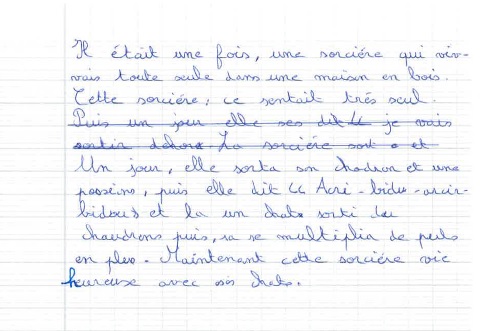 Il était une fois, une sorciére qui viv-
vais toute seule dans une maison en bois.
Cette sorciére, ce sentait trés seul.
Puis un jour elle ses dit " je vais
sortir dehors La sorciére sort et
Un jour, elle sorta son chodron et une
posseino, puis elle dit " Acri-bidu-
bidous et la un chats sorti du
chaudrons puis, sa se multiplia de puls
en plus. Maintenant cette sorciére vie
heureuse avec ses chats.